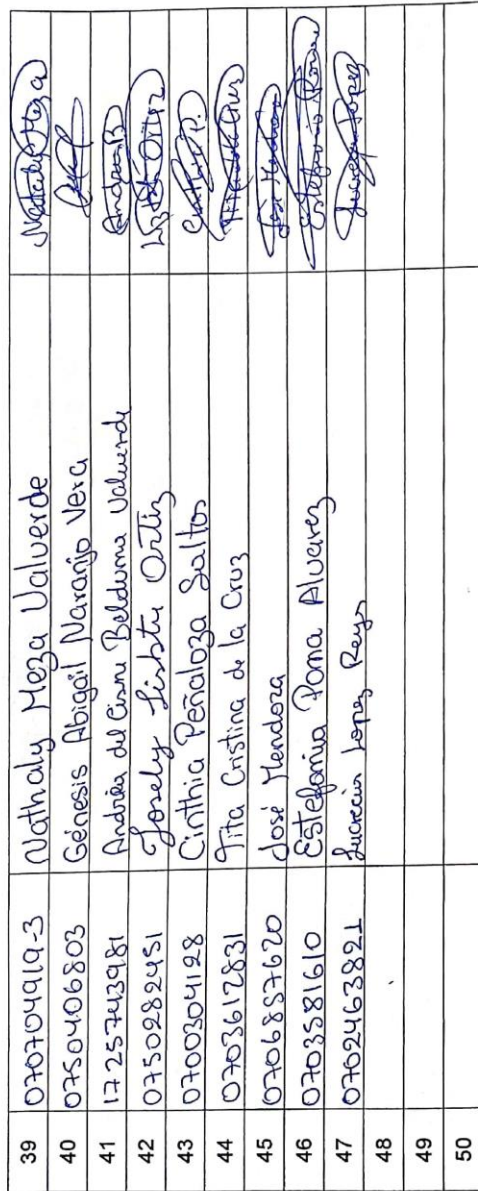 39 070704919-3 Nathaly Meza Valverde Nathaly Meza
40 0750406803 Génesis Abigail Naranjo Vera
41 1725743981 Andrea del Cisne Belduma Valverde Andrea B
42 0750282451 Josely Lisbth Ortiz Ortiz
43 0700304128 Cinthia Peñaloza Saltos Cinthia P.
44 0703612831 Tita Cristina de la Cruz
45 0706857620 José Mendoza José Mendoza
46 0703581610 Estefania Poma Alvarez Estefania Poma
47 0702463821 Lucrecia Lopez Reyes Lucrecia Lopez
48
49
50